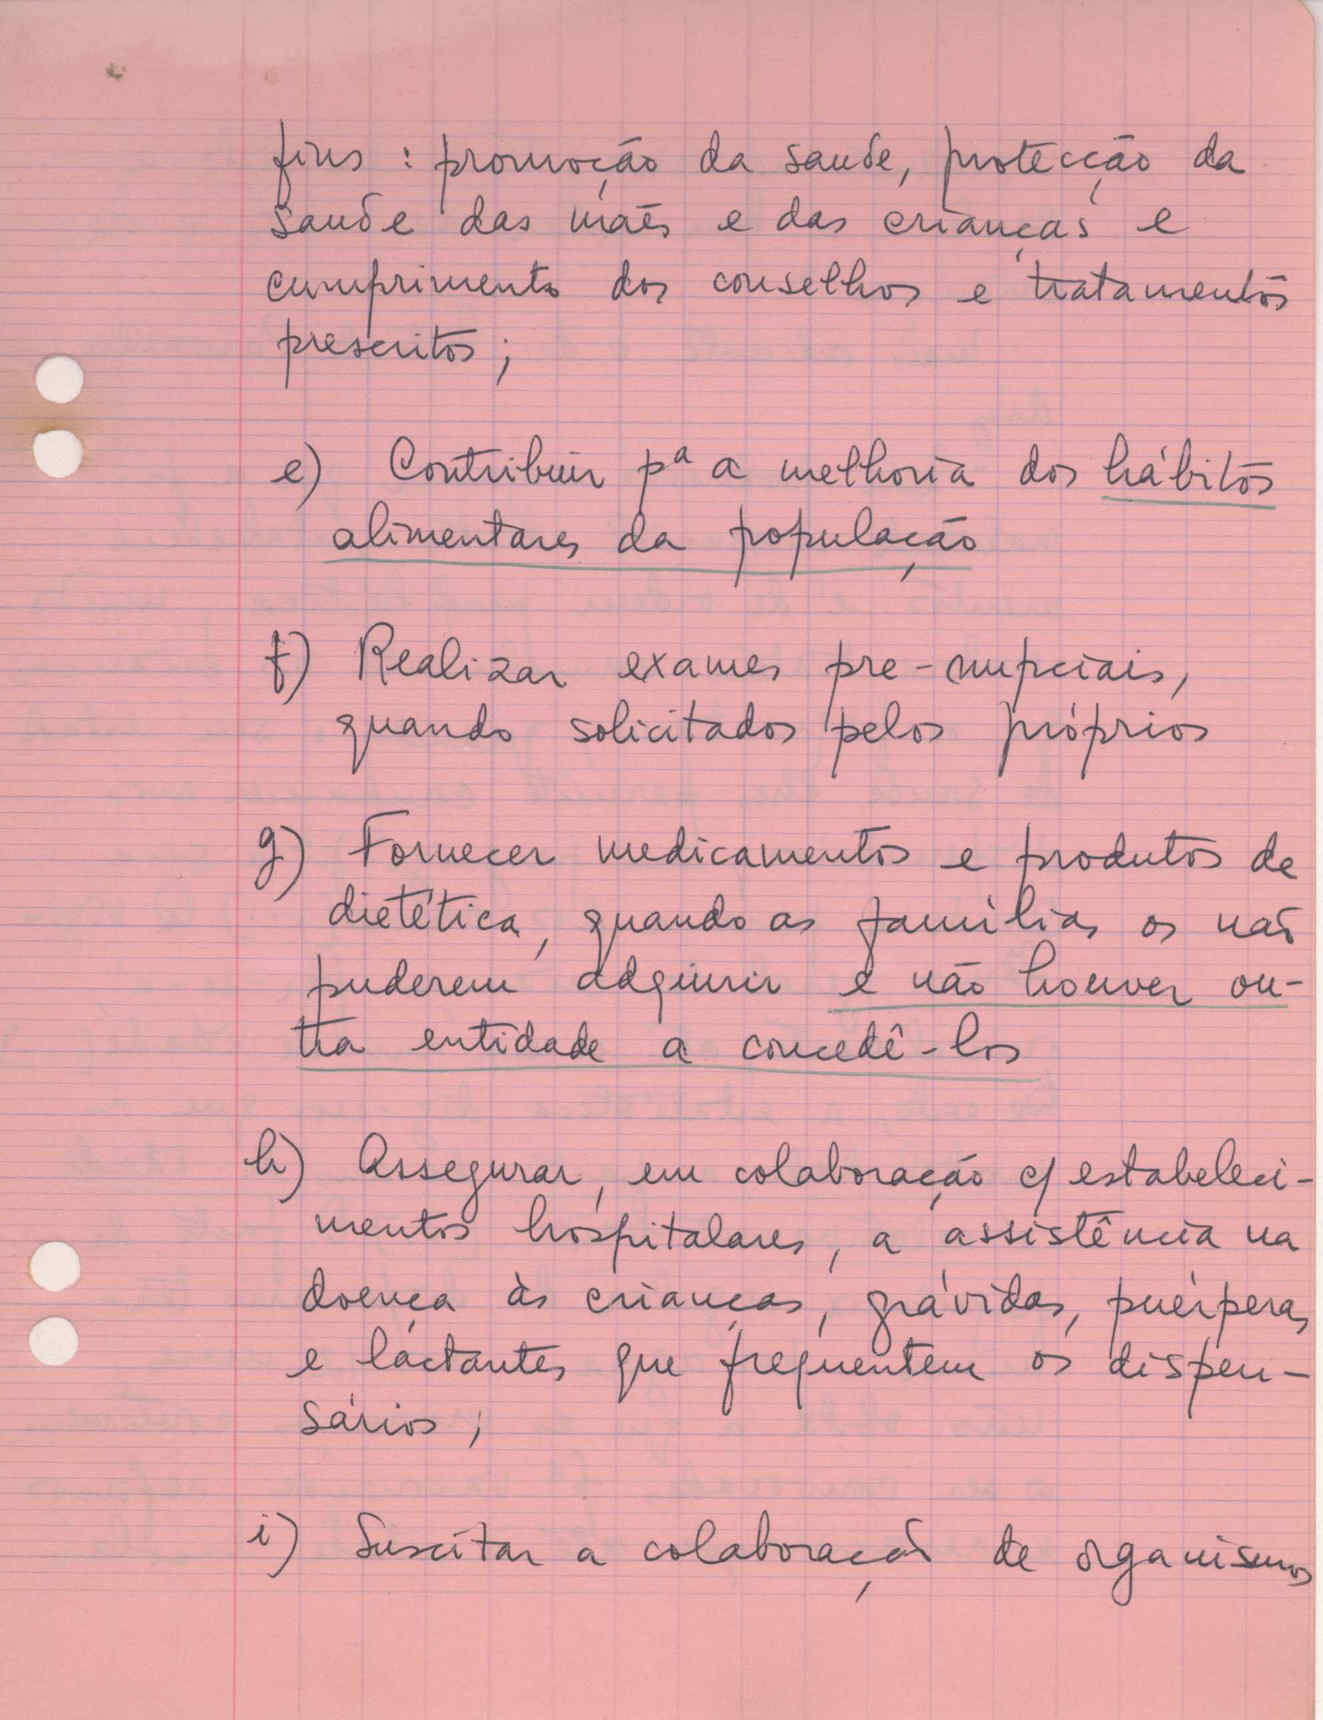 fins : promoção da saude, protecção da
saude das mães e das crianças e
cumprimento dos conselhos e tratamentos
prescritos ;
e) Contribuir pª a melhoria dos hábitos
alimentares da população
f) Realizar exames pre-nupciais,
quando solicitados pelos próprios
g) Fornecer medicamentos e produtos de
dietética, quando as famílias os não
puderem adquirir e não houver ou-
tra entidade a concedê-los
h) Assegurar, em colaboração c/ estabeleci-
mentos hospitalares, a assistência na
doença às crianças, grávidas, puérperas
e lactantes que frequentem os dispen-
sários ;
i) Suscitar a colaboração de organismos